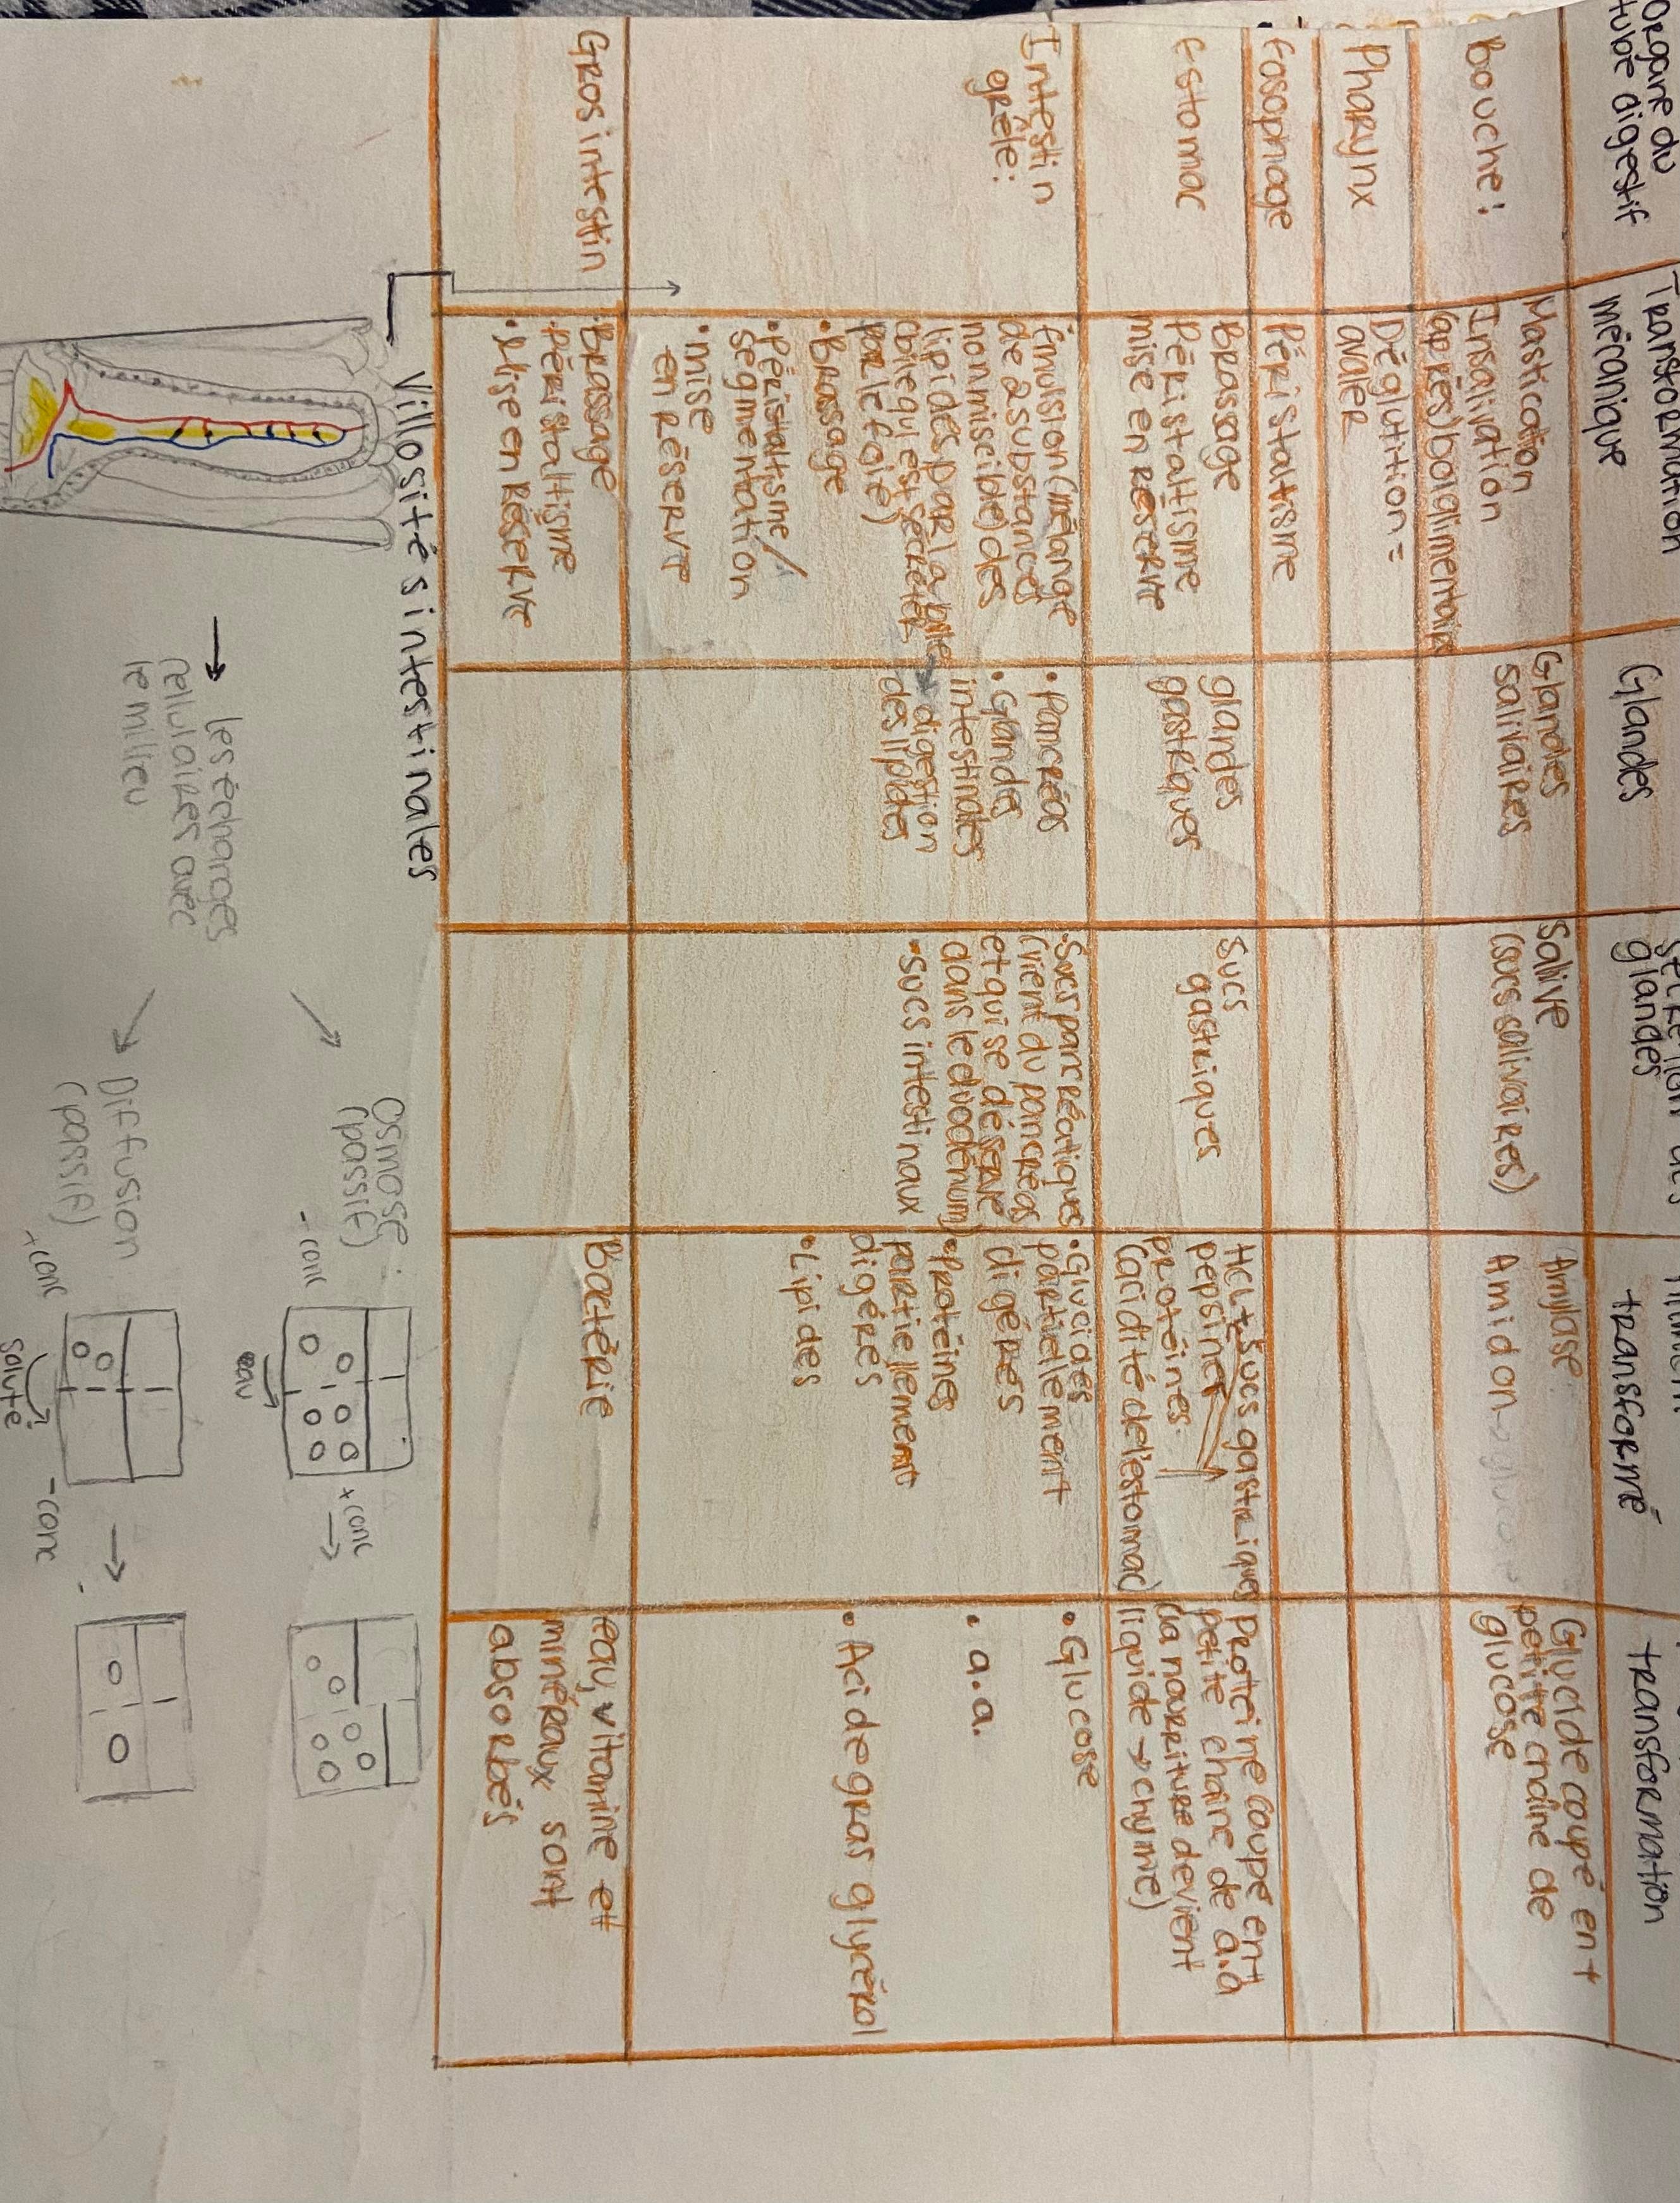 Organe du
tube digestif
Transformation
mécanique
Glandes
glandes
transformé
transformation
Bouche:
Mastication
Insalivation
(après) bol alimentaire
Glandes
salivaires
Salive
(sucs salivaires)
Amylase
Amidon
Glucide coupé ent
petite chaîne de
glucose
Pharynx
Déglutition =
avaler
Eosophage
Péristaltisme
Estomac
Brassage
Péristaltisme
mise en réserve
glandes
gastriques
Sucs
gastriques
HCl + sucs gastriques
pepsine
protéines
(acidité de l'estomac)
Proteine coupé ent
petite chaîne de a.a
(la nourriture devient
liquide → chyme)
Intestin
grêle:
Émulsion (mélange
de 2 substances
non miscible) des
lipides par la bile
par le foie)
• Brassage
• Péristaltisme /
segmentation
• mise
en réserve
• Pancréas
• Glandes
intestinales
→ digestion
des lipides
• Sucs pancréatiques
(vient du pancréas
et qui se déserve
dans le duodénum)
• Sucs intestinaux
• Glucides
partiellement
digérés
• Protéines
partiellement
digérés
• Lipides
• Glucose
• a.a.
• Acide gras glycérol
Gros intestin
• Brassage
• Péristaltisme
• Mise en réserve
Bactérie
eau, vitamine et
minéraux sont
absorbés
Villosités intestinales
→ les échanges
cellulaires avec
le milieu
Osmose:
(passif)
- conc
+ conc
→
eau
Diffusion
(passif)
+ conc
- conc
→
soluté